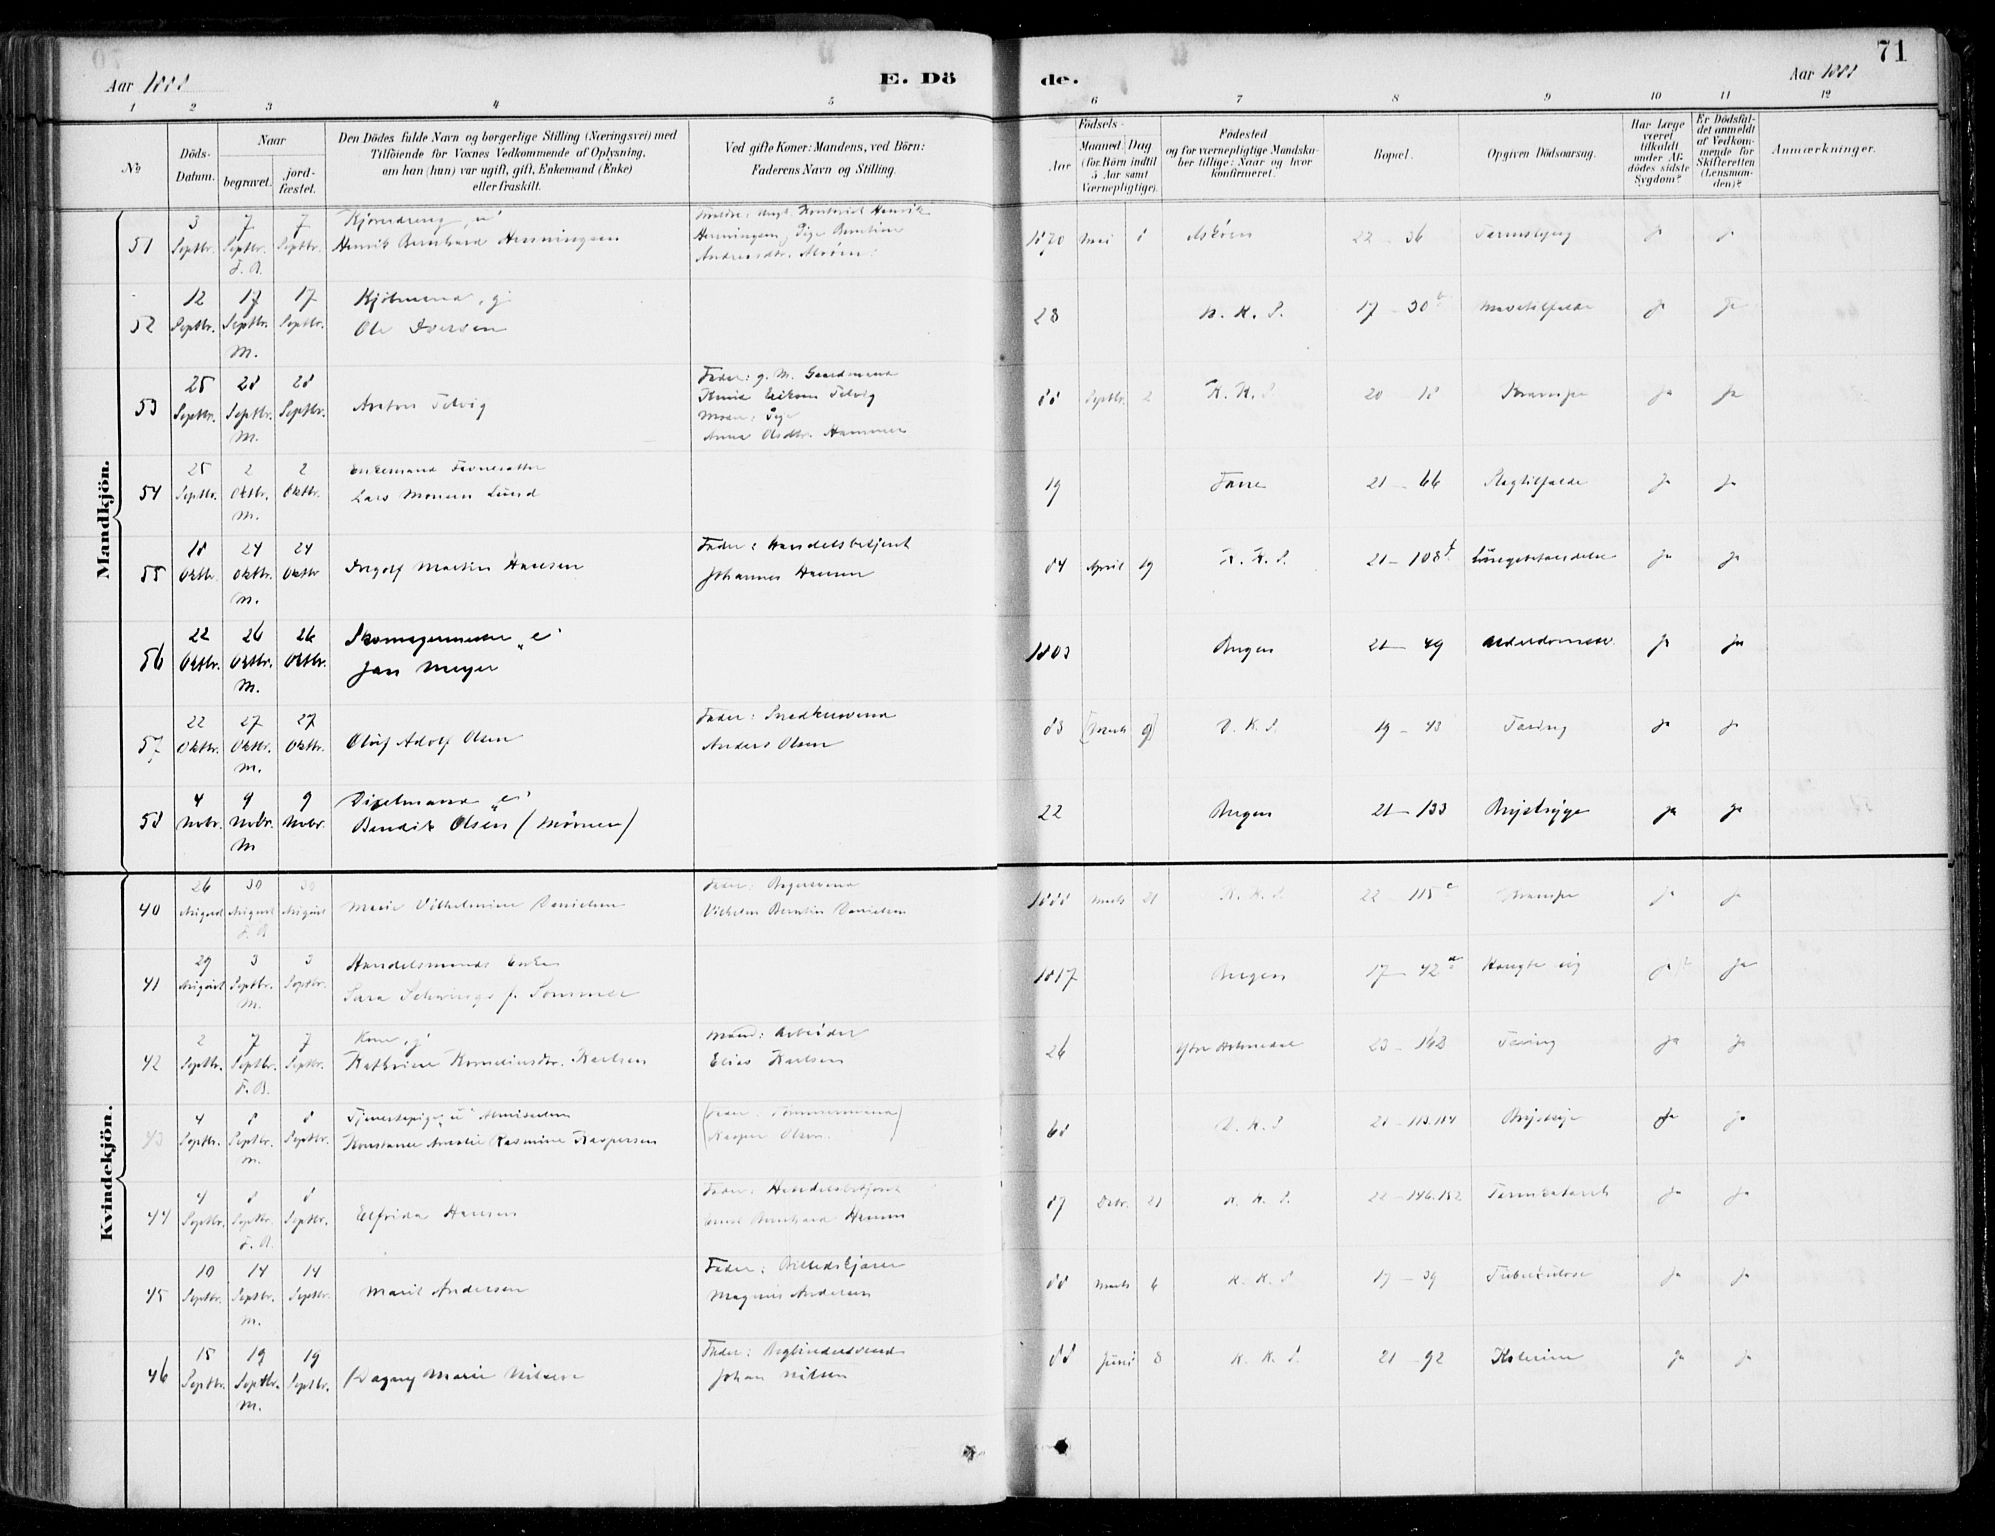 71
Aar 1888
E. Dö
de.
Aar 1888
1 2 3 4 5 6 7 8 9 10 11 12
No
Döds-
Datum.
Naar
begravet.
jord-
fæstet.
Den Dödes fulde Navn og borgerlige Stilling (Næringsvei) med
Tilföiende for Voxnes Vedkommende af Oplysning,
om han (hun) var ugift, gift, Enkemand (Enke)
eller fraskilt.
Ved gifte Koner: Mandens, ved Börn:
Faderens Navn og Stilling.
Födsels-
Aar
Maaned.
Dag
(for Börn indtil
5 Aar samt
Værnepligtige).
Födested
og for værnepligtige Mandska-
ber tillige: Naar og hvor
konfirmeret.
Bopæl.
Opgiven Dödsaarsag.
Har Læge
været
tilkaldt
under Af-
dödes sidste
Sygdom?
Er Dödsfal-
det anmeldt
af Vedkom-
mende for
Skifteretten
(Lensman-
den)?
Anmærkninger.
Mandkjön.
51 3 Septbr. 7 Septbr. 7 Septbr.
Henrik Bernhard Henningsen
1870 Mai 8 Askøen 22 - 36 ja ja
52 12 Septbr. 17 Septbr. M. 17 Septbr.
Ole Iversen
28 17 - 30 Mavetilfælde ja ja
53 25 Septbr. 28 Septbr. M. 28 Septbr. Anton Telvig
Fader: g. M. Gaardmand
Knud Eriksen Telvig
Moder: Pige
Anna Olsdtr. Hammer
88 Septbr. 2 20 - 18 Krampe ja ja
54 25 Septbr. 2 Oktbr. M. 2 Oktbr.
Lars Monsen Lund
19 Fane 21 - 66 Slagtilfælde ja ja
55 18 Oktbr. 24 Oktbr. M. 24 Oktbr Ingolf Martin Hansen
Fader: Handelsbetjent
Johannes Hansen
84 April 19 K. K. S. 21 - 108 Lungebetændelse ja ja
56 22 Oktbr. 26 Oktbr. M. 26 Oktbr. Skomagermester "e"
Jan Meyer
1803 Bergen 21 - 49 ja ja
57 22 Oktbr. 27 Oktbr. M. 27 Oktbr. Oluf Adolf Olsen
Fader: Snedkersvend
Anders Olsen
83 9 D. K. S. 19 - 43 Tæring ja ja
58 4 Novbr. 9 Novbr. M 9 Novbr. "e"
Bendik Olsen (Mörner)
22 Bergen 21 - 133 Brystsyge ja ja
Kvindekjön.
40 26 August 30 August 30 August Marie Vilhelmine Danielsen
Fader: Bagersvend
Vilhelm Berntin Danielsen
1888 Marts 21 22 - 115 Krampe ja ja
41 29 August 3 Septbr. M. 3 Septbr. Handelsmands Enke
f. Sommer
1817 Bergen 17 - 42 ja ja
42 2 Septbr. 7 Septbr. 7 Septbr. Kone, g
Kathrine Korneliusdtr. Karlsen
Mand: Arbeider
Elias Karlsen
26 Ytre Holmedal 23 - 162 Tæring ja ja
43 4 Septbr. 8 Septbr. M. 8 Septbr. Tjenestepige, "u"
Konstance Amalie Rasmine Kaspersen
(Fader: Tømmermand
Kasper Olsen.)
68 D. K. S 21 - 113.114 Brystsyge ja ja
44 4 Septbr. 8 Septbr. 8 Septbr. Elfrida Hansen
Fader: Handelsbetjent
Bernhard Hansen
87 Debr. 21 22 - 146.152 Tarmkatarrh ja ja
45 10 Septbr. 14 Septbr. M. 14 Septbr. Marit Andersen
Fader: Billedskjærer
Magnus Andersen
88 Marts 6 K. K. S 17 - 39 Tuberkulose ja ja
46 15 Septbr. 19 Septbr. M. 19 Septbr. Dagny Marie Nilsen
Fader: Bogbindersvend
Johan Nilsen
88 Juni 8 K. K. S. 21 - 92 Kolerine ja ja